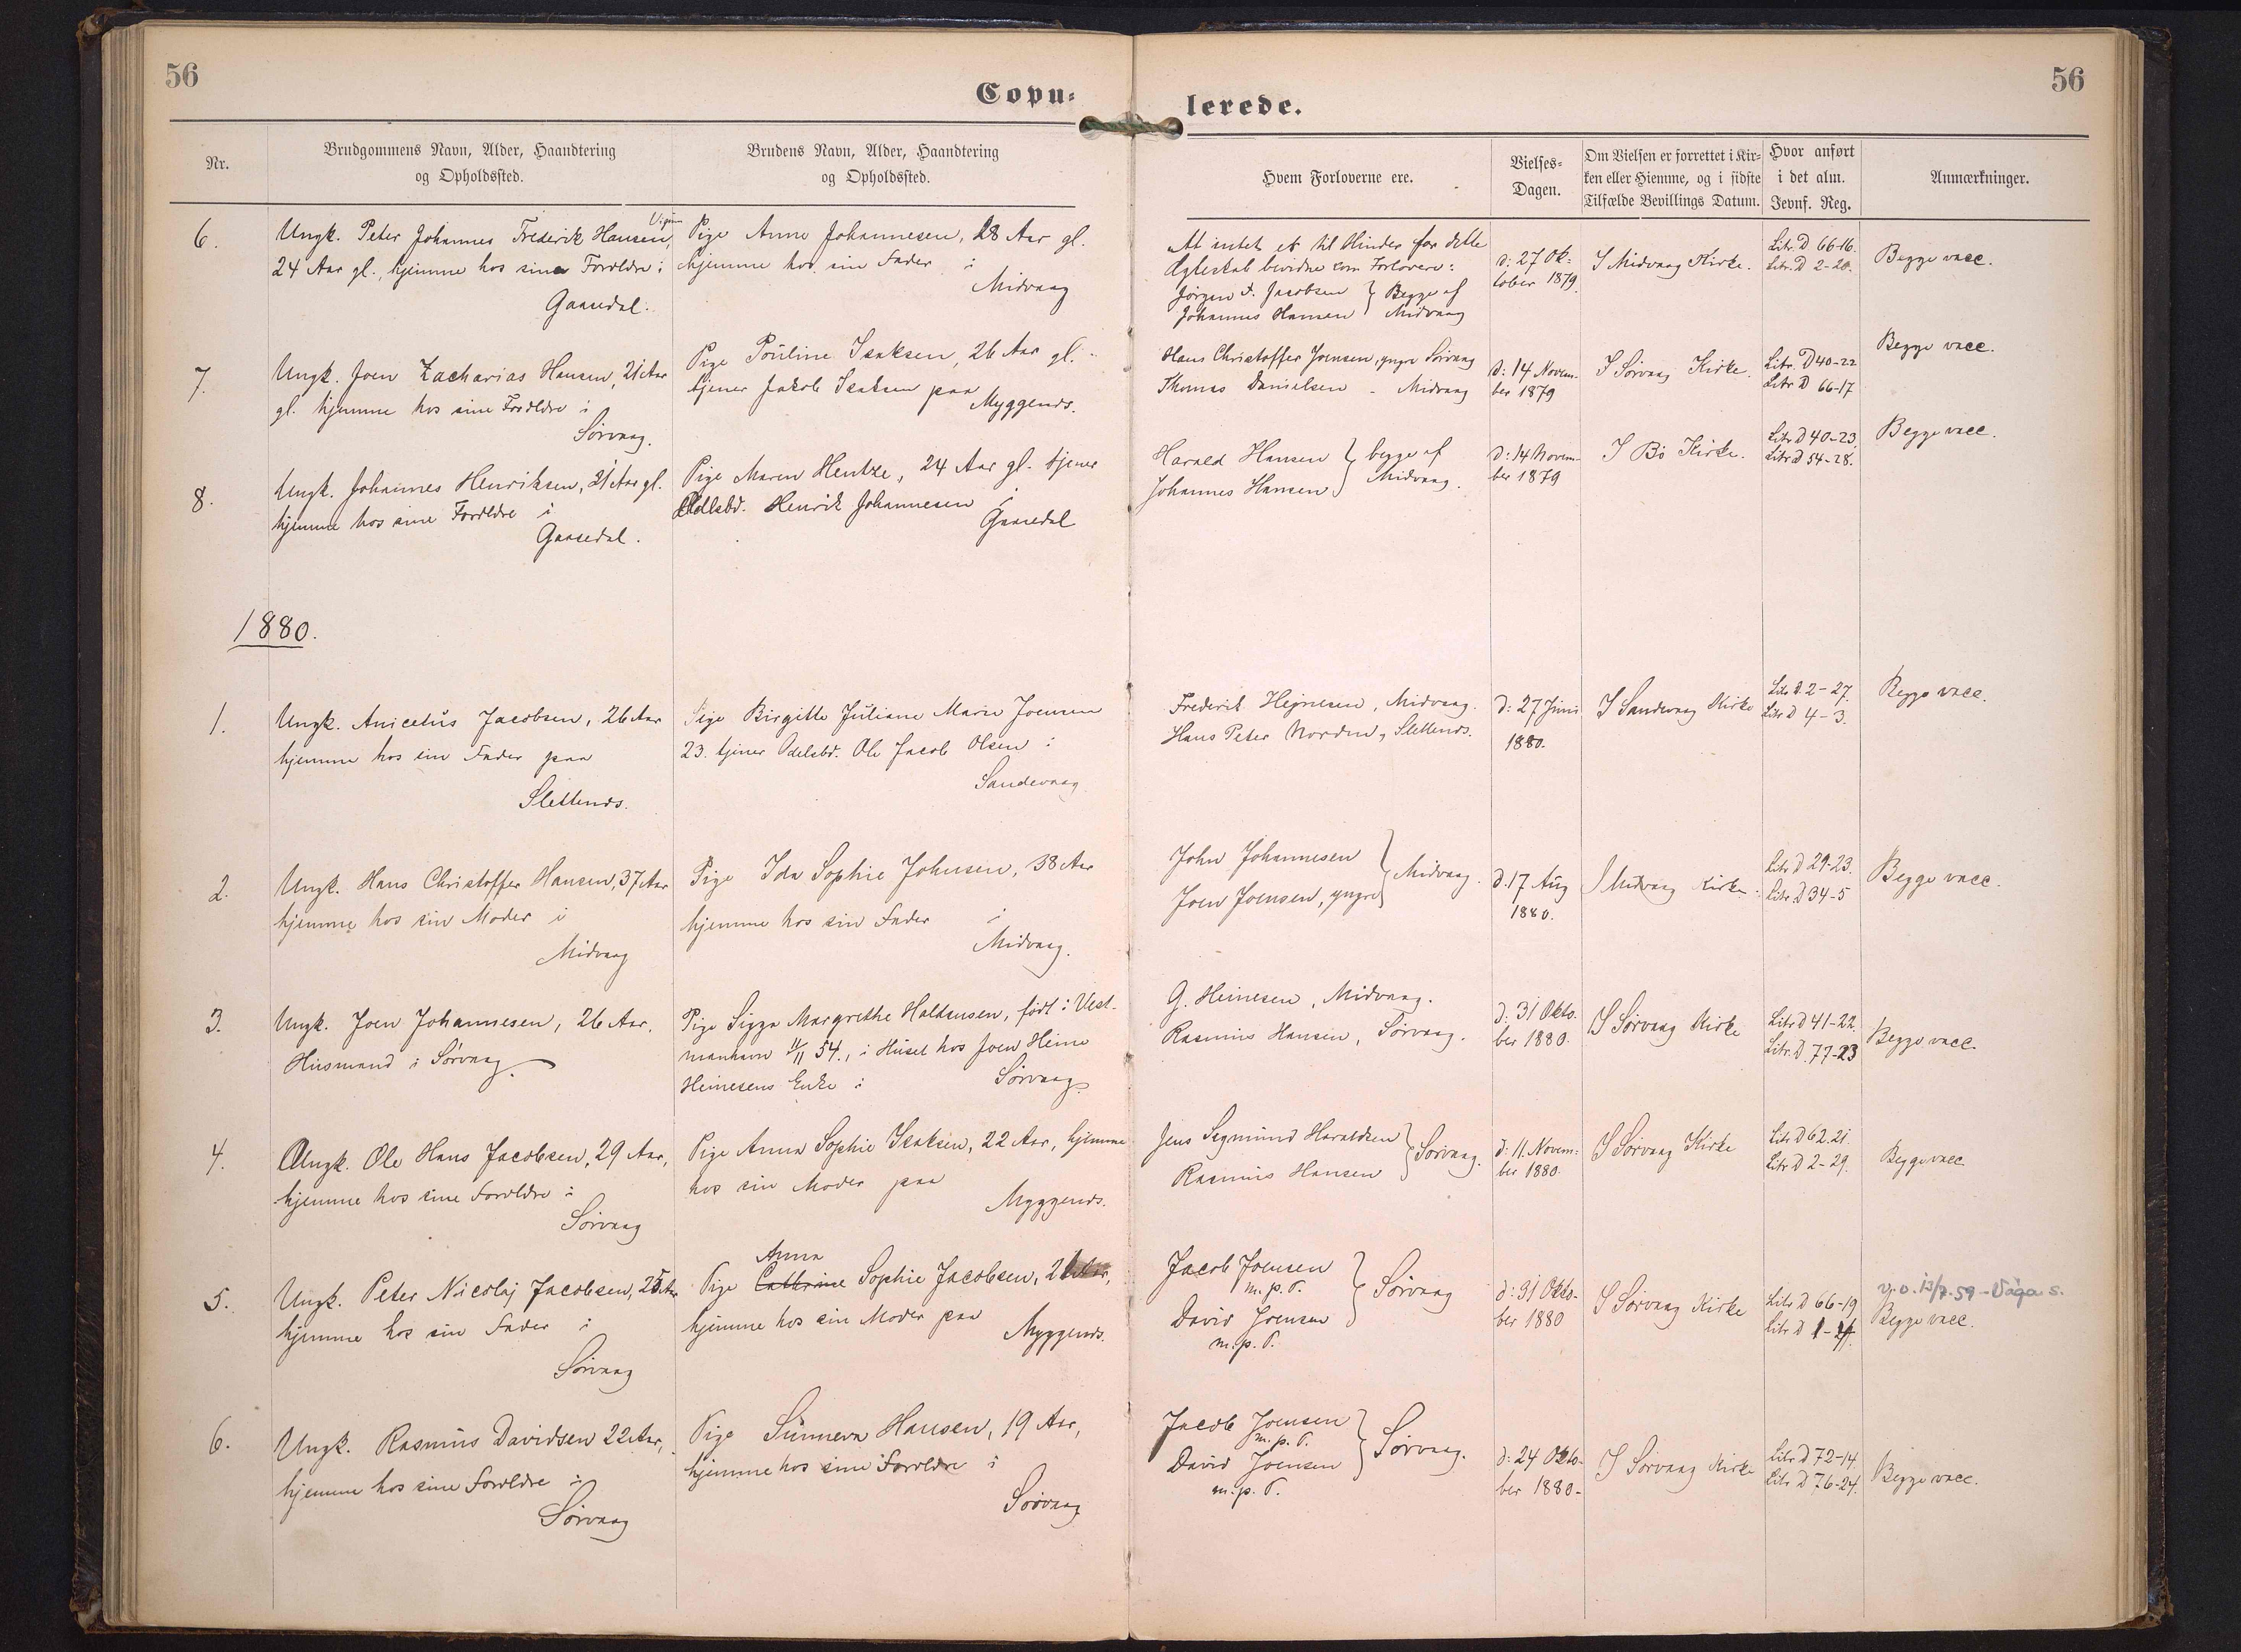 56
56
Copu=
lerede.
Nr.
Brudgommens Navn, Alder, Haandtering
og Opholdssted.
Brudens Navn, Alder, Haandtering
og Opholdssted.
Hvem Forloverne ere.
Vielses-
Dagen.
Om Vielsen er forrettet i Kir-
ken eller Hiemme, og i sidste
Tilfælde Bevillings Datum.
Hvor anført
i det alm.
Jevnf. Reg.
Anmærkninger.
6.
Ungk. Peter Johannes Frederik Hansen,
24 Aar gl., hjemme hos sine Forældre i
Gaasedal.
Pige Anne Johannesen, 28 Aar gl.
hjemme hos sin Fader i
Midvaag
At intet er til Hinder for dette
Ægteskab bevidne som Forlovere:
Jørgen F. Jacobsen } Begge af
Johannes Hansen } Midvaag
d: 27 Ok-
tober 1879.
I Midvaag Kirke.
Litr. D 66-16.
Litr. D 2-20.
Begge vacc.
7.
Ungk. Joen Zacharias Hansen, 21 Aar
gl. hjemme hos sine Forældre i
Sørvaag.
Pige Pouline Isaksen, 26 Aar gl.
tjener Jakob Isaksen paa
Myggenæs.
Hans Christoffer Joensen, yngre Sørvaag
Thomas Danielsen - Midvaag
d: 14 Novem-
ber 1879
I Sørvaag Kirke.
Litr. D 40-22
Litr D 66-17
Begge vacc.
8.
Ungk. Johannes Henriksen, 21 Aar gl.
hjemme hos sine Forældre i
Gaasedal.
Pige Maren Hentze, 24 Aar gl. tjener
Odelsbd. Henrik Johannesen i
Gaasedal
Harald Hansen } begge af
Johannes Hansen } Midvaag.
d: 14 Novem-
ber 1879
I Bø Kirke.
Litr D 40-23.
Litr D 54-28.
Begge vacc.
1880.
1.
Ungk. Anicetus Jacobsen, 26 Aar
hjemme hos sin Fader paa
Slettenæs.
Pige Birgitte Juliane Marie Joensen
23. tjener Odelsbd. Ole Jacob Olsen i
Sandevaag
Frederik Hejnesen, Midvaag.
Hans Peter Norden, Slettenæs.
d: 27 Juni
1880.
I Sandevaag Kirke
Litr D. 2-27.
Litr D 4-3.
Begge vacc.
2.
Ungk. Hans Christoffer Hansen, 37 Aar
hjemme hos sin Moder i
Midvaag
Pige Ida Sophie Johnsen, 38 Aar
hjemme hos sin Fader i
Midvaag.
John Johannesen
Joen Joensen, yngre } Midvaag.
d. 17 Aug
1880.
I Midvaag Kirke.
Litr D 29-23.
Litr. D 34-5
Begge vacc.
3.
Ungk. Joen Johannesen, 26 Aar.
Husmand i Sørvaag.
Pige Sigga Margrethe Haldansen, født i Vest-
manhavn 11/11 54., i Huset hos Joen Heine
Heinesens Enke i Sørvaag.
G. Heinesen, Midvaag.
Rasmus Hansen, Sørvaag.
d: 31 Okto-
ber 1880.
I Sørvaag Kirke
Litr D 41-22.
Litr. D. 77-23
Begge vacc.
4.
Ungk. Ole Hans Jacobsen, 29 Aar,
hjemme hos sine Forældre i
Sørvaag
Pige Anna Sophie Isaksen, 22 Aar, hjemme
hos sin Moder paa
Myggenæs.
Jens Segmund Haraldsen
Rasmus Hansen } Sørvaag.
d: 11. Novem-
ber 1880.
I Sørvaag Kirke
Litr D 62.21.
Litr D 2-29.
Begge vacc.
5.
Ungk. Peter Nicolaj Jacobsen, 25 Aar
hjemme hos sin Fader i
Sørvaag
Anna
Pige Cathrine Sophie Jacobsen,
hjemme hos sin Moder paa
Myggenæs.
Jacob Joensen
m. p. P.
David Joensen } Sørvaag
m. p. P.
d: 31 Okto-
ber 1880
I Sørvaag Kirke
Litr D 66-19
Litr D
v. o. 13/7. 59 - Vága s.
Begge vacc.
6.
Ungk. Rasmus Davidsen 22 Aar,
hjemme hos sine Forældre i
Sørvaag
Pige Sunneva Hansen, 19 Aar,
hjemme hos sine Forældre i
Sørvaag
Jacob Joensen
m. p. P.
David Joensen } Sørvaag.
m. p. P.
d: 24 Okto-
ber 1880.
I Sørvaag Kirke
Litr D 72-14.
Litr D 76-24.
Begge vacc.